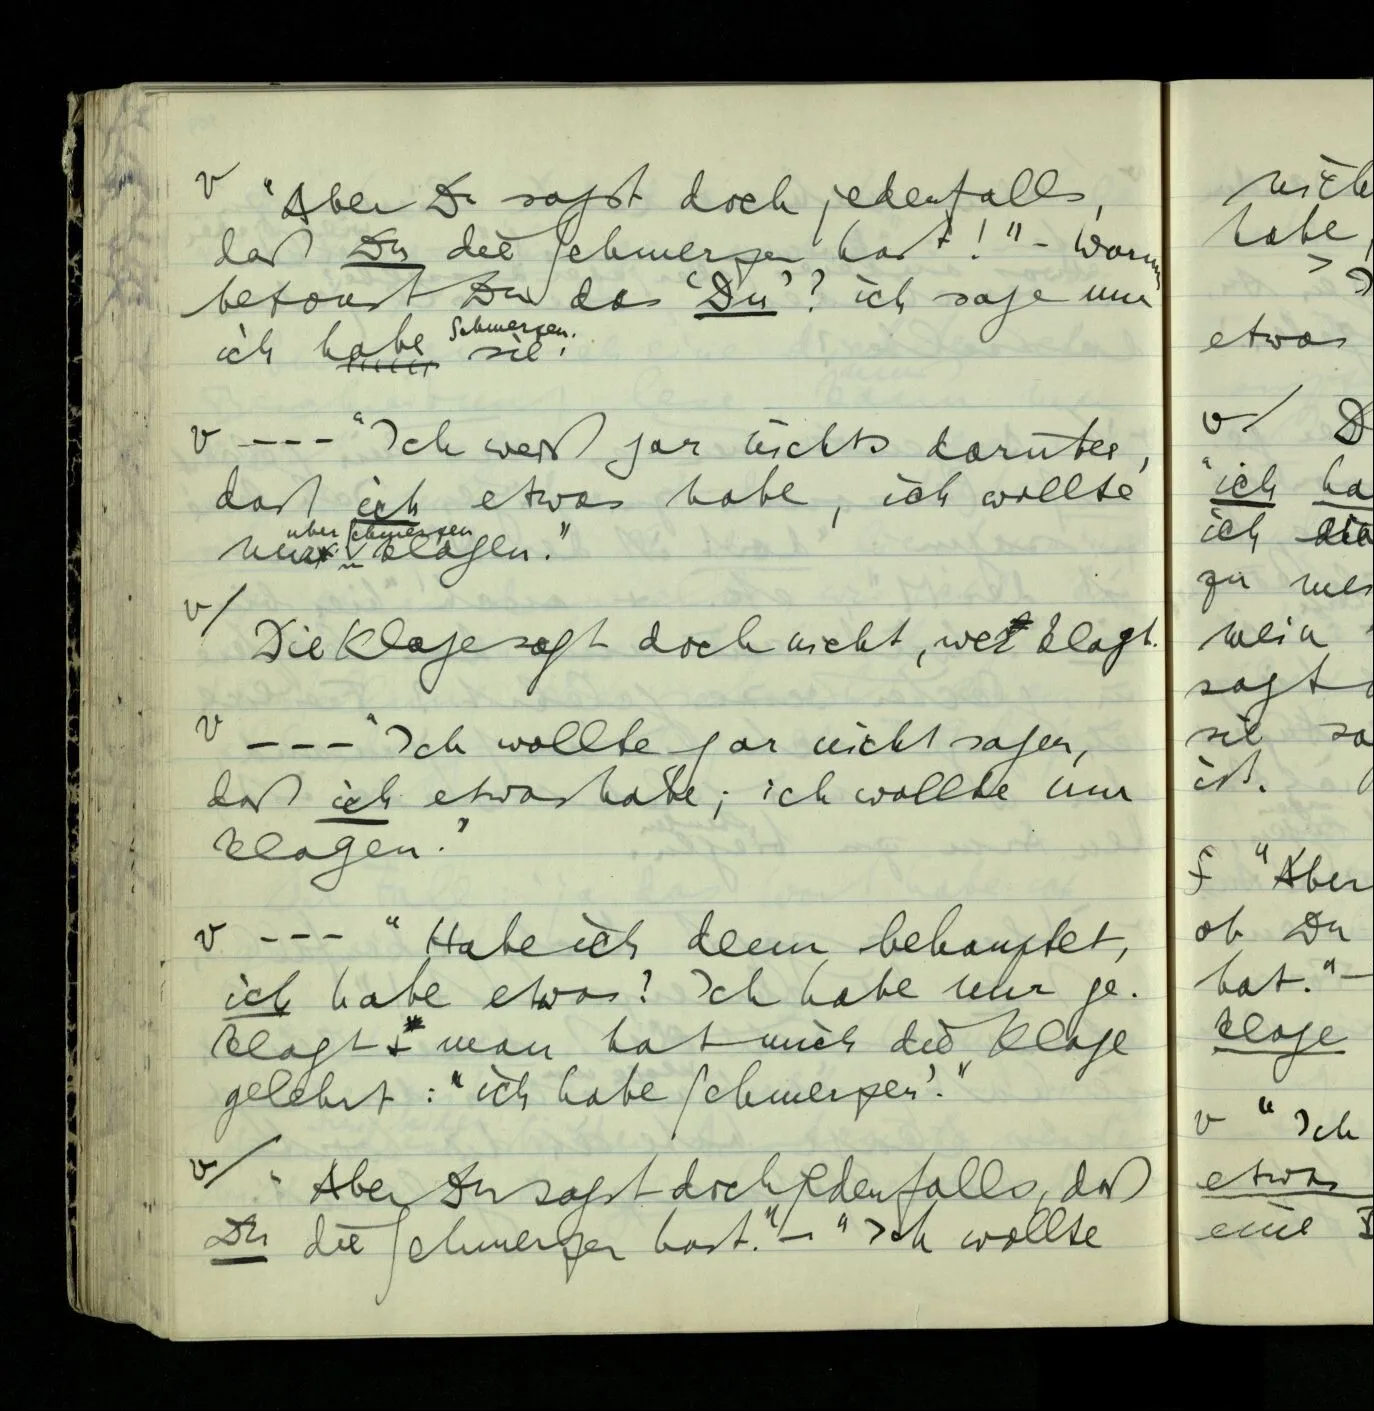 v "Aber Du sagst doch jedenfalls,
daß Du die Schmerzen hast!" – Warum
betonst Du das 'Du'? ich sage nur
ich habe sie! Schmerzen.
v --- "Ich weiß gar nichts darüber,
daß ich etwas habe, ich wollte
nur über Schmerzen klagen."
v/
Die Klage sagt doch nicht, wer klagt.
v --- "Ich wollte gar nicht sagen,
daß ich etwas habe; ich wollte nur
klagen."
v --- "Habe ich denn behauptet,
ich habe etwas? Ich habe nur ge-
klagt man hat mich die Klage
gelehrt: "ich habe Schmerzen'."
v/ "Aber Du sagst doch jedenfalls, daß
Du die Schmerzen hast." – "Ich wollte
habe,
etwas
v/ D
"ich ha
ich die
zu
mein
sagt
sie sa
ist.
f "Aber
ob Du
hat." –
Klage
v "Ich
etwas
eine